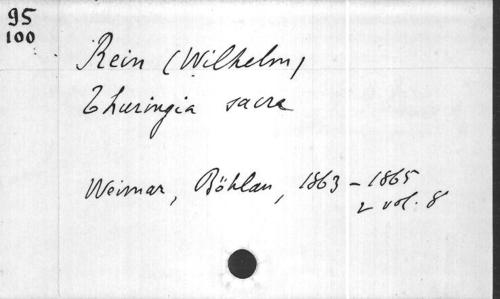 95
100
Rein (Wilhelm)
Thuringia sacra
Weimar, Böhlau, 1863-1865
2 vol. 8